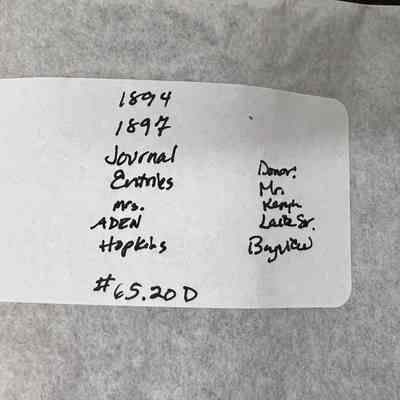 1894
1897
Journal
Entries
Mrs.
ADEN
Hopkins
#65.20D
Donor:
Mr.
Sr.
Bayview